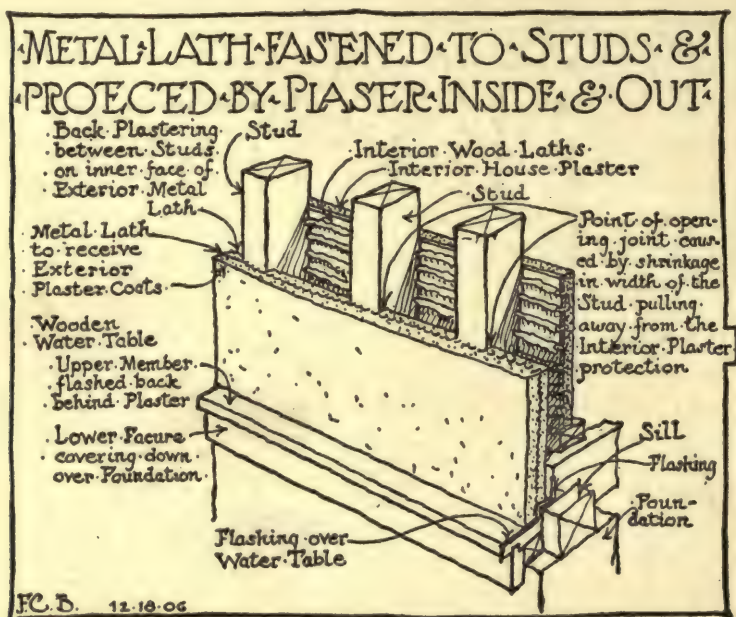 METAL·LATH·FASTENED·TO·STUDS·&
·PROECED·BY·PLASER·INSIDE·&·OUT·
·Back·Plastering·
·between·Studs·
·on·inner·face·of·
·Exterior·Metal
Lath
Stud
·Interior·Wood·Laths·
·Interior·House·Plaster
·Stud
·Metal·Lath
to·receive
·Exterior
·Plaster·Coats·
·Point·of·open-
ing·joint·caus-
ed·by·shrinkage
in·width·of·the
·Stud·pulling·
away·from·the
Interior·Plaster·
protection
·Wooden
·Water·Table
·Upper·Member
·flashed·back
·behind·Plaster
·Lower·Facure
·covering·down
over·Foundation·
Sill
Flashing
·Foun-
dation
Flashing·over
Water·Table
F.C.B. 12·18·06